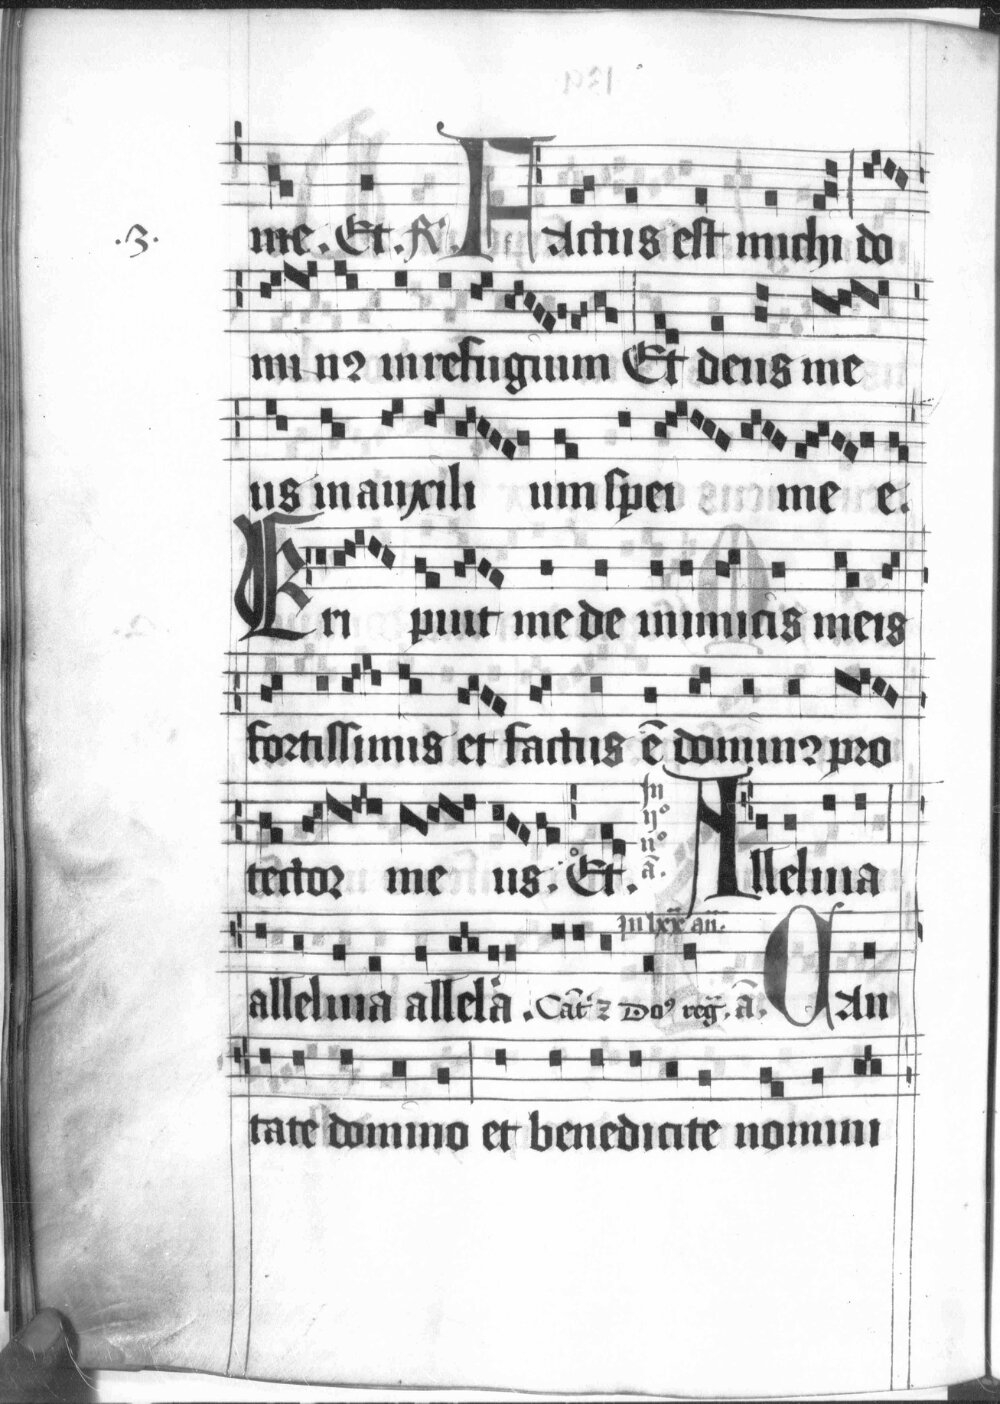 .3.
me. Et. R. Factus est michi do
min9 in refugium Et deus me
us in auxili um spei me e.
Eri puit me de inimicis meis
fortissimis et factus ē domin9 pro
tector me us. Et. In ij° n° ā. Alleluia
In lxx an.
alleluia allelā. Cāt z Do9 reg. ā. Can
tate domino et benedicite nomini